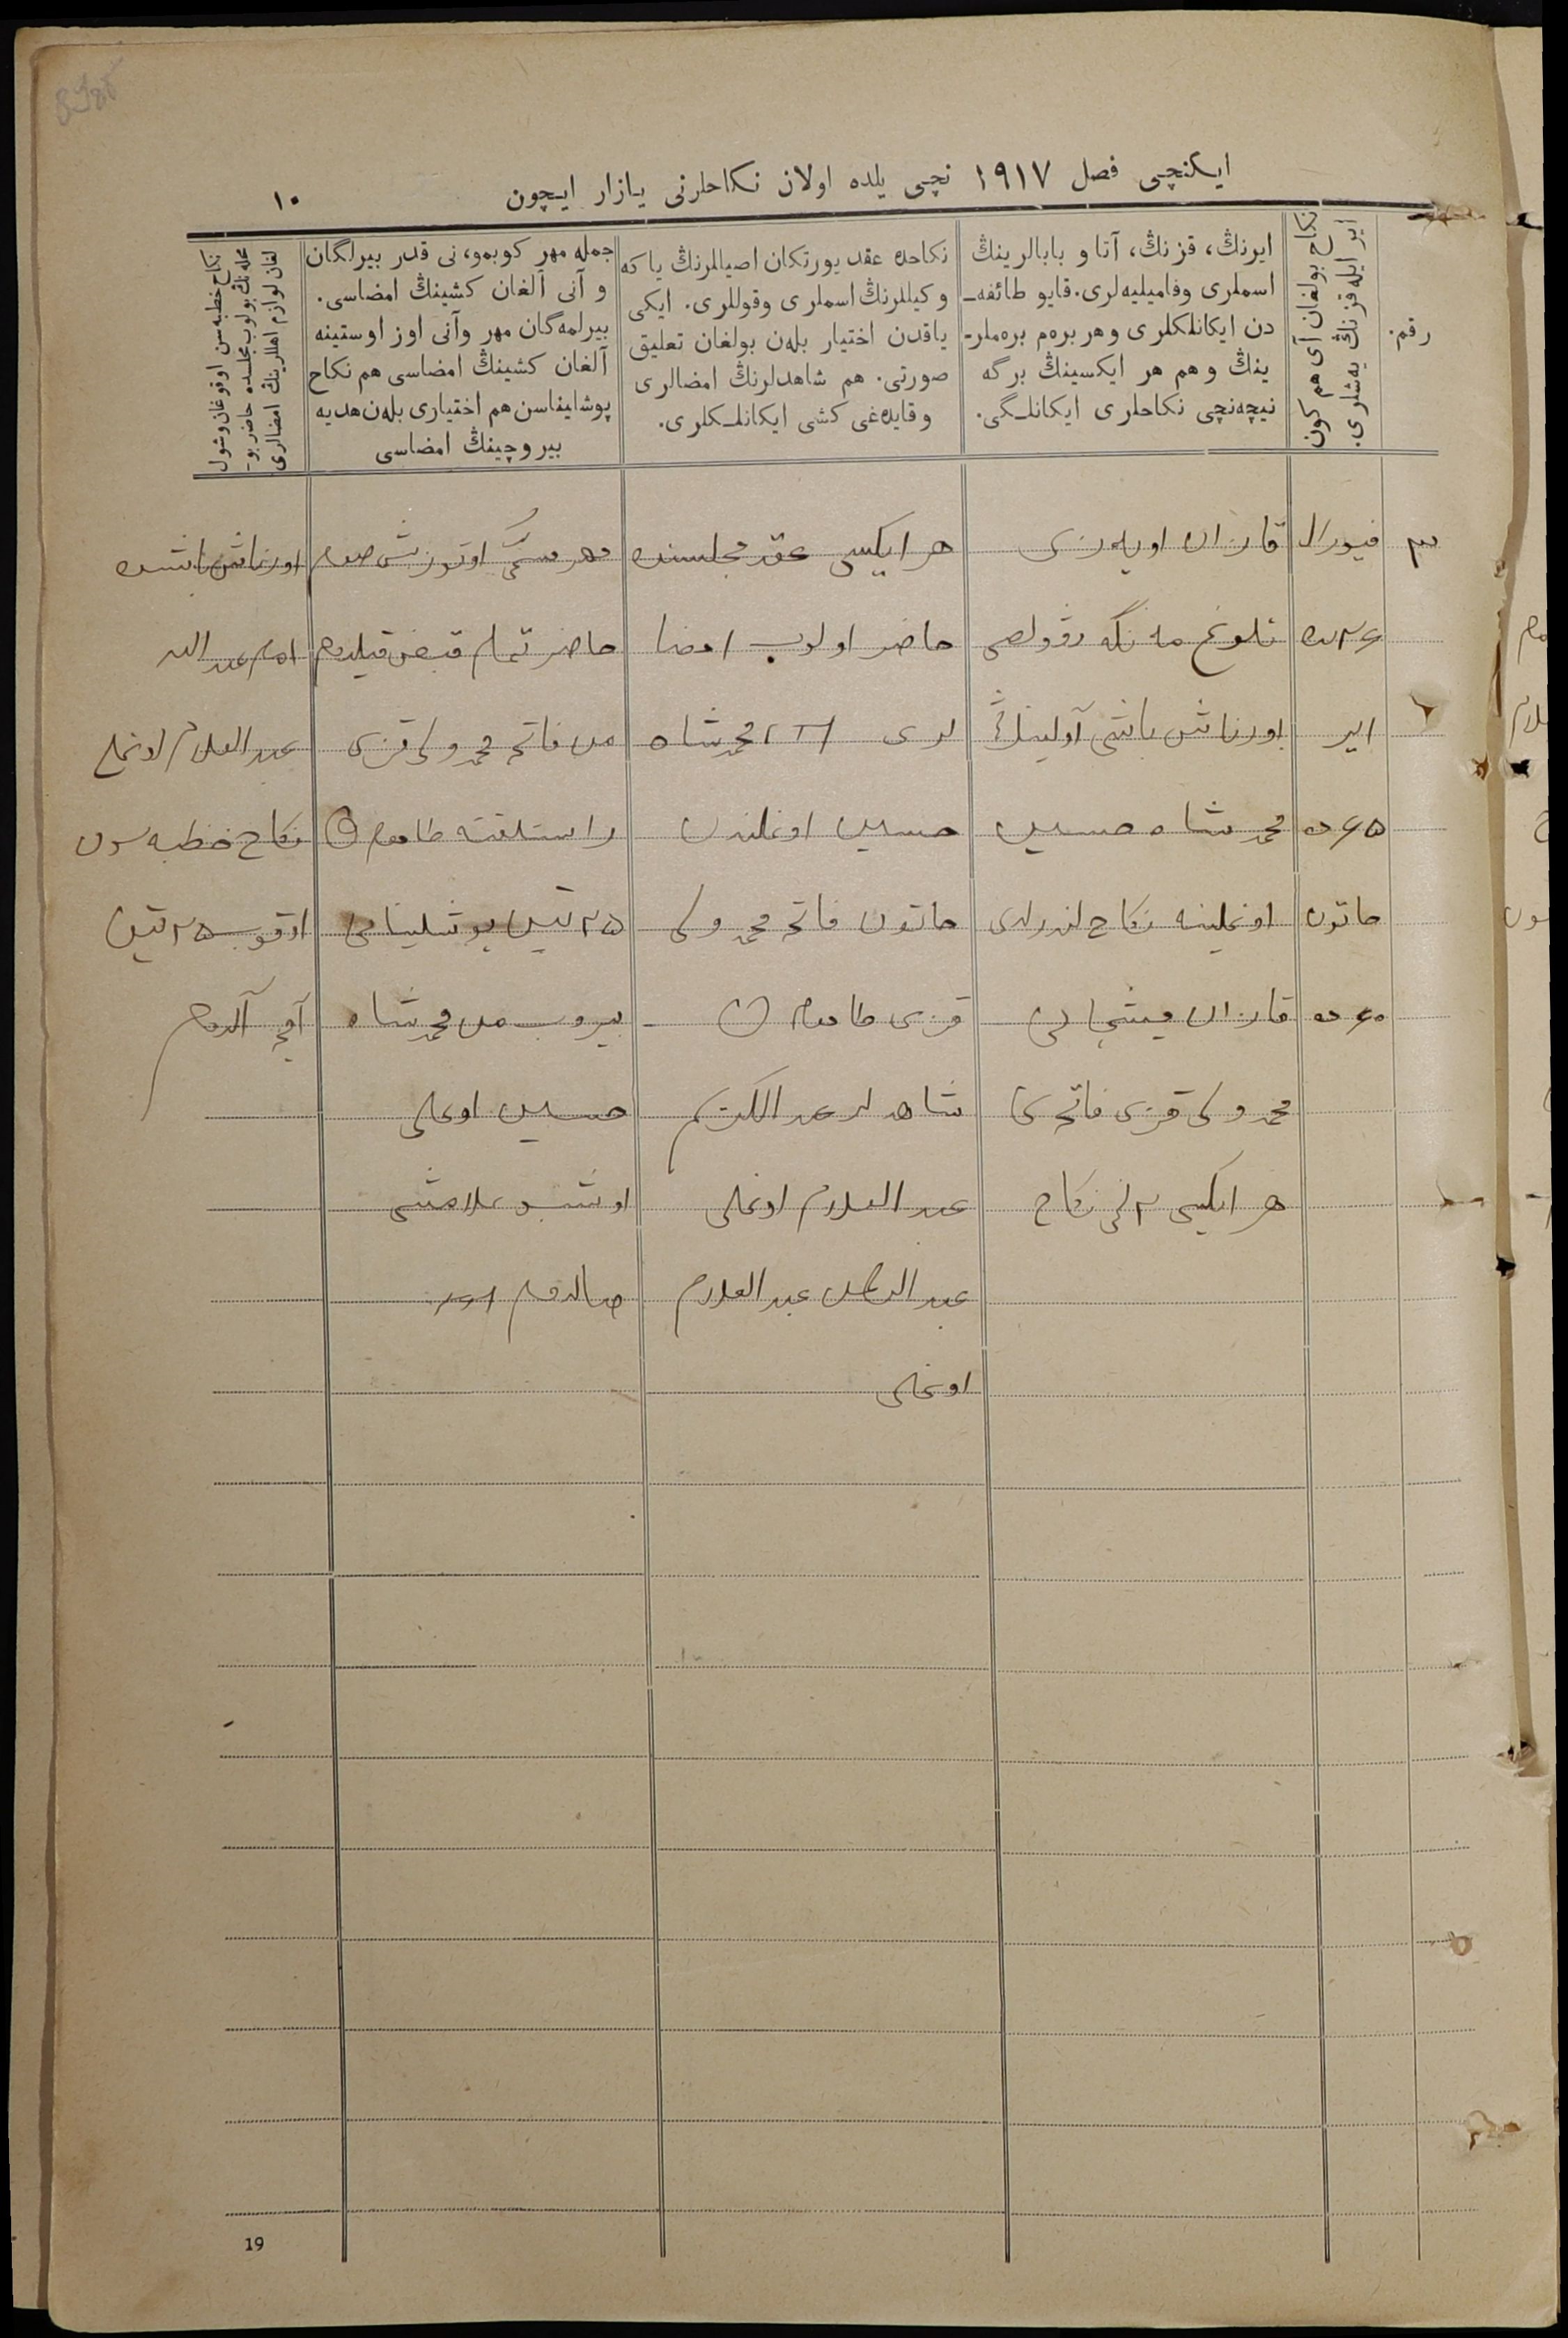 ایکنچی فصل ۱۹۱۷ نچی یلده اولان نکاحلرنی یازار ایچون
۱۰
رقم.
نکاح بولغان آی هم کون
ایر ایله قزنڭ یه‌شلری.
ایرنڭ، قزنڭ، آتا و بابالرینڭ
اسملری وفامیلیه‌لری. قایو طائفه‌ـ
دن ایکانلکلری وهر بره‌م بره‌ملرـ
ینڭ وهم هر ایکسینڭ برگه
نیچه‌نچی نکاحلری ایکانلـگی.
نکاحده عقد یورتکان اصیاللرنڭ یاکه
وکیللرنڭ اسملری وقوللری. ایکی
یاقدن اختیار بله‌ن بولغان تعلیق
صورتی. هم شاهدلرنڭ امضالری
وقایده‌غی کشی ایکانلـکلری.
جمله مهر کوبمو، نی قدر بیرلگان
و آنی آلغان کشینڭ امضاسی.
بیرلمه‌گان مهر وآنی اوز اوستینه
آلغان کشینڭ امضاسی هم نکاح
پوشلیناسن هم اختیاری بله‌ن هدیه
بیروچینڭ امضاسی
نکاح خطبه‌سن اوقوغان وشول
محله‌نڭ بولوب مجلسده حاضر بوـ
لغان لوازم اهللرینڭ امضالری
۳
فیورال
۲۶ ده
ایر
۶۵ ده
خاتون
۶۰ ده
قازان اویه‌زی
باشی آولینڭ
محمدشاه حسین
اوغلینه نکاح لندرلدی
قازان میشچانی
محمدولی قزی فاتحه‌نی
هر ایکیسی ۲ نچی نکاح
هر ایکیسی عقد مجلسنده
حاضر اولوب امضا
لری محمدشاه
حسین اوغلندن
خاتون فاتحه محمدولی
قزی طامغام
شاهدلر عبدالکریم
عبدالعلام اوغلی
عبدالرحمن عبدالعلام
اوغلی
مهر مسمی اوتوز بش صوم
حاضر تمام قبض قیلدوم
من فاتحه محمدولی قزی
راستلقته طامغام
۲۵ تین پوشلینانی
بیروب من محمدشاه
حسین اوغلی
اوشبو علامتنی
صالدوم
امام عبدالله
عبدالعلام اوغلی
نکاح خطبه‌سون
اوقوب ۲۵ تین
آقچه آلدوم
19